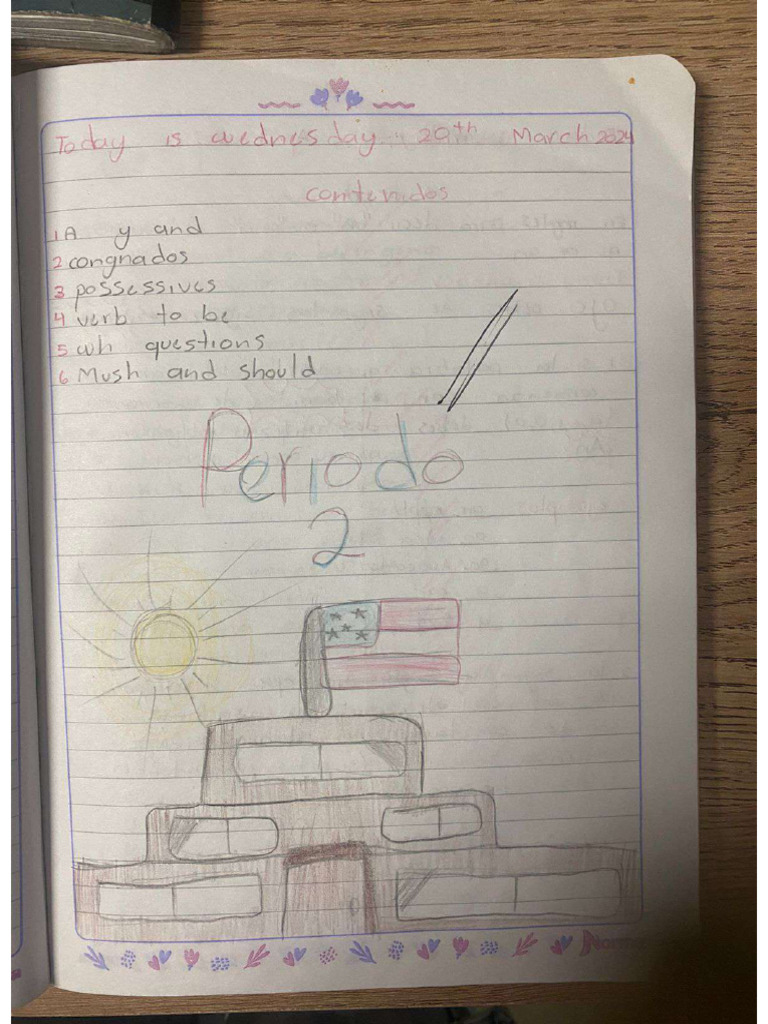 Today is wednesday. 29th March 2024
contenidos
1 A y and
2 congnados
3 possessives
4 verb to be
5 wh questions
6 Mush and should
Periodo
2